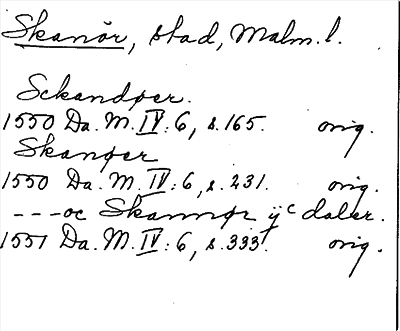 Skanör, stad, Malm. l.
Sckandøer.
1550 Da. M. IV: 6, s. 165. orig.
Skanøer
1550 Da. M. IV: 6, s. 231. orig.
---oc Skannør ijc daler.
1551 Da. M. IV: 6, s. 333. orig.